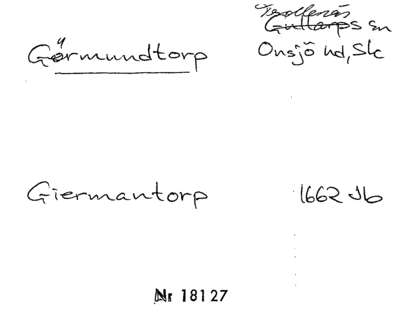 Trollenäs
Gullarps sn
Görmundtorp
Onsjö hd, Sk
Giermantorp 1662 Jb
Nr 18127